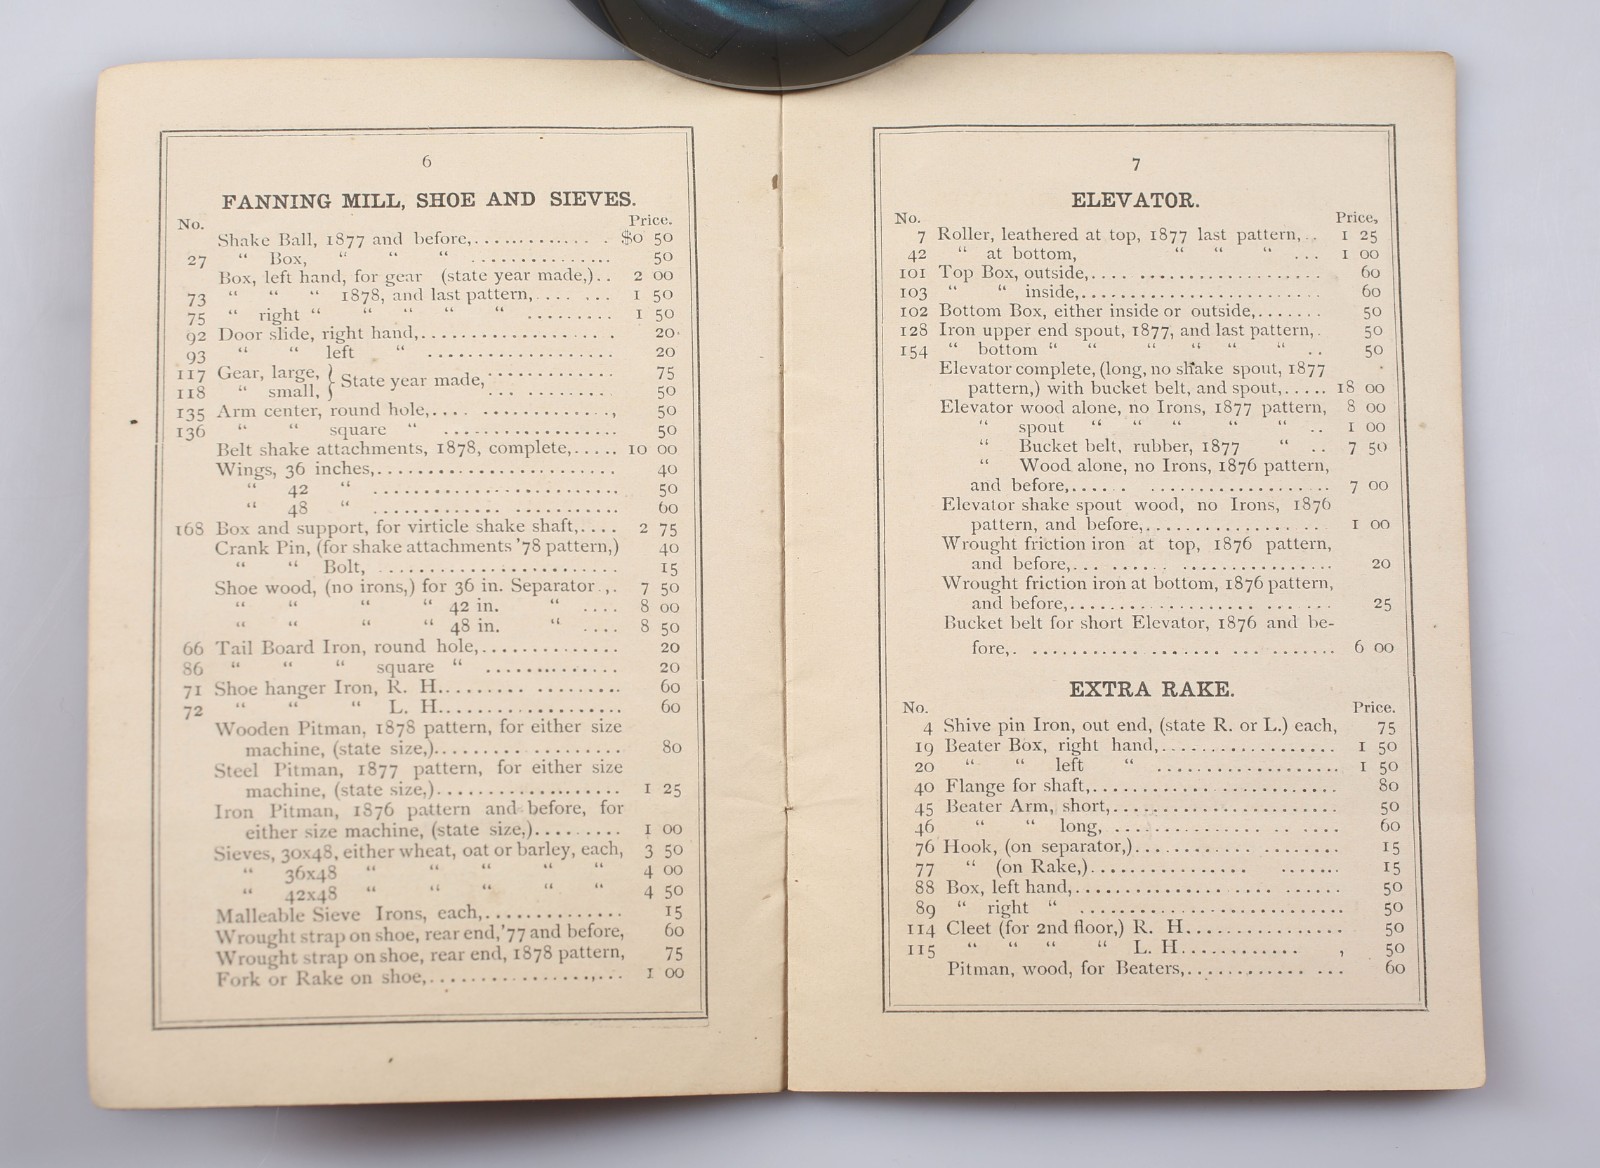 6
FANNING MILL, SHOE AND SIEVES.
No. Price.
Shake Ball, 1877 and before,.............. $0 50
27 “ Box, “ “ “ ............... 50
Box, left hand, for gear (state year made,).. 2 00
73 “ “ “ 1878, and last pattern,........ 1 50
75 “ right “ “ “ “ “ ......... 1 50
92 Door slide, right hand,..................... 20
93 “ “ left “ .................... 20
117 Gear, large, } State year made,............. 75
118 “ small, } ............. 50
135 Arm center, round hole,.................., 50
136 “ “ square “ .................. 50
Belt shake attachments, 1878, complete,..... 10 00
Wings, 36 inches,......................... 40
“ 42 “ ......................... 50
“ 48 “ ......................... 60
168 Box and support, for virticle shake shaft,.... 2 75
Crank Pin, (for shake attachments '78 pattern,) 40
“ “ Bolt, ........................ 15
Shoe wood, (no irons,) for 36 in. Separator.,. 7 50
“ “ “ “ 42 in. “ .... 8 00
“ “ “ “ 48 in. “ .... 8 50
66 Tail Board Iron, round hole,.............. 20
86 “ “ “ square “ .............. 20
71 Shoe hanger Iron, R. H.................. 60
72 “ “ “ L. H.................. 60
Wooden Pitman, 1878 pattern, for either size
machine, (state size,).................. 80
Steel Pitman, 1877 pattern, for either size
machine, (state size,).................. 1 25
Iron Pitman, 1876 pattern and before, for
either size machine, (state size,)......... 1 00
Sieves, 30x48, either wheat, oat or barley, each, 3 50
“ 36x48 “ “ “ “ “ 4 00
“ 42x48 “ “ “ “ “ 4 50
Malleable Sieve Irons, each,.............. 15
Wrought strap on shoe, rear end,'77 and before, 60
Wrought strap on shoe, rear end, 1878 pattern, 75
Fork or Rake on shoe,.................... 1 00
7
ELEVATOR.
No. Price,
7 Roller, leathered at top, 1877 last pattern,.. 1 25
42 “ at bottom, “ “ “ ... 1 00
101 Top Box, outside,...................... 60
103 “ “ inside,........................ 60
102 Bottom Box, either inside or outside,....... 50
128 Iron upper end spout, 1877, and last pattern,. 50
154 “ bottom “ “ “ “ “ “ .. 50
Elevator complete, (long, no shake spout, 1877
pattern,) with bucket belt, and spout,..... 18 00
Elevator wood alone, no Irons, 1877 pattern, 8 00
“ spout “ “ “ “ “ .. 1 00
“ Bucket belt, rubber, 1877 “ .. 7 50
“ Wood alone, no Irons, 1876 pattern,
and before,........................ 7 00
Elevator shake spout wood, no Irons, 1876
pattern, and before,.................. 1 00
Wrought friction iron at top, 1876 pattern,
and before,........................ 20
Wrought friction iron at bottom, 1876 pattern,
and before,........................ 25
Bucket belt for short Elevator, 1876 and be-
fore,............................... 6 00
EXTRA RAKE.
No. Price.
4 Shive pin Iron, out end, (state R. or L.) each, 75
19 Beater Box, right hand,.................. 1 50
20 “ “ left “ .................. 1 50
40 Flange for shaft,......................... 80
45 Beater Arm, short,....................... 50
46 “ “ long, ..................... 60
76 Hook, (on separator,).................... 15
77 “ (on Rake,)....................... 15
88 Box, left hand,......................... 50
89 “ right “ .......................... 50
114 Cleet (for 2nd floor,) R. H................ 50
115 “ “ “ “ L. H............ , 50
Pitman, wood, for Beaters,............... 60